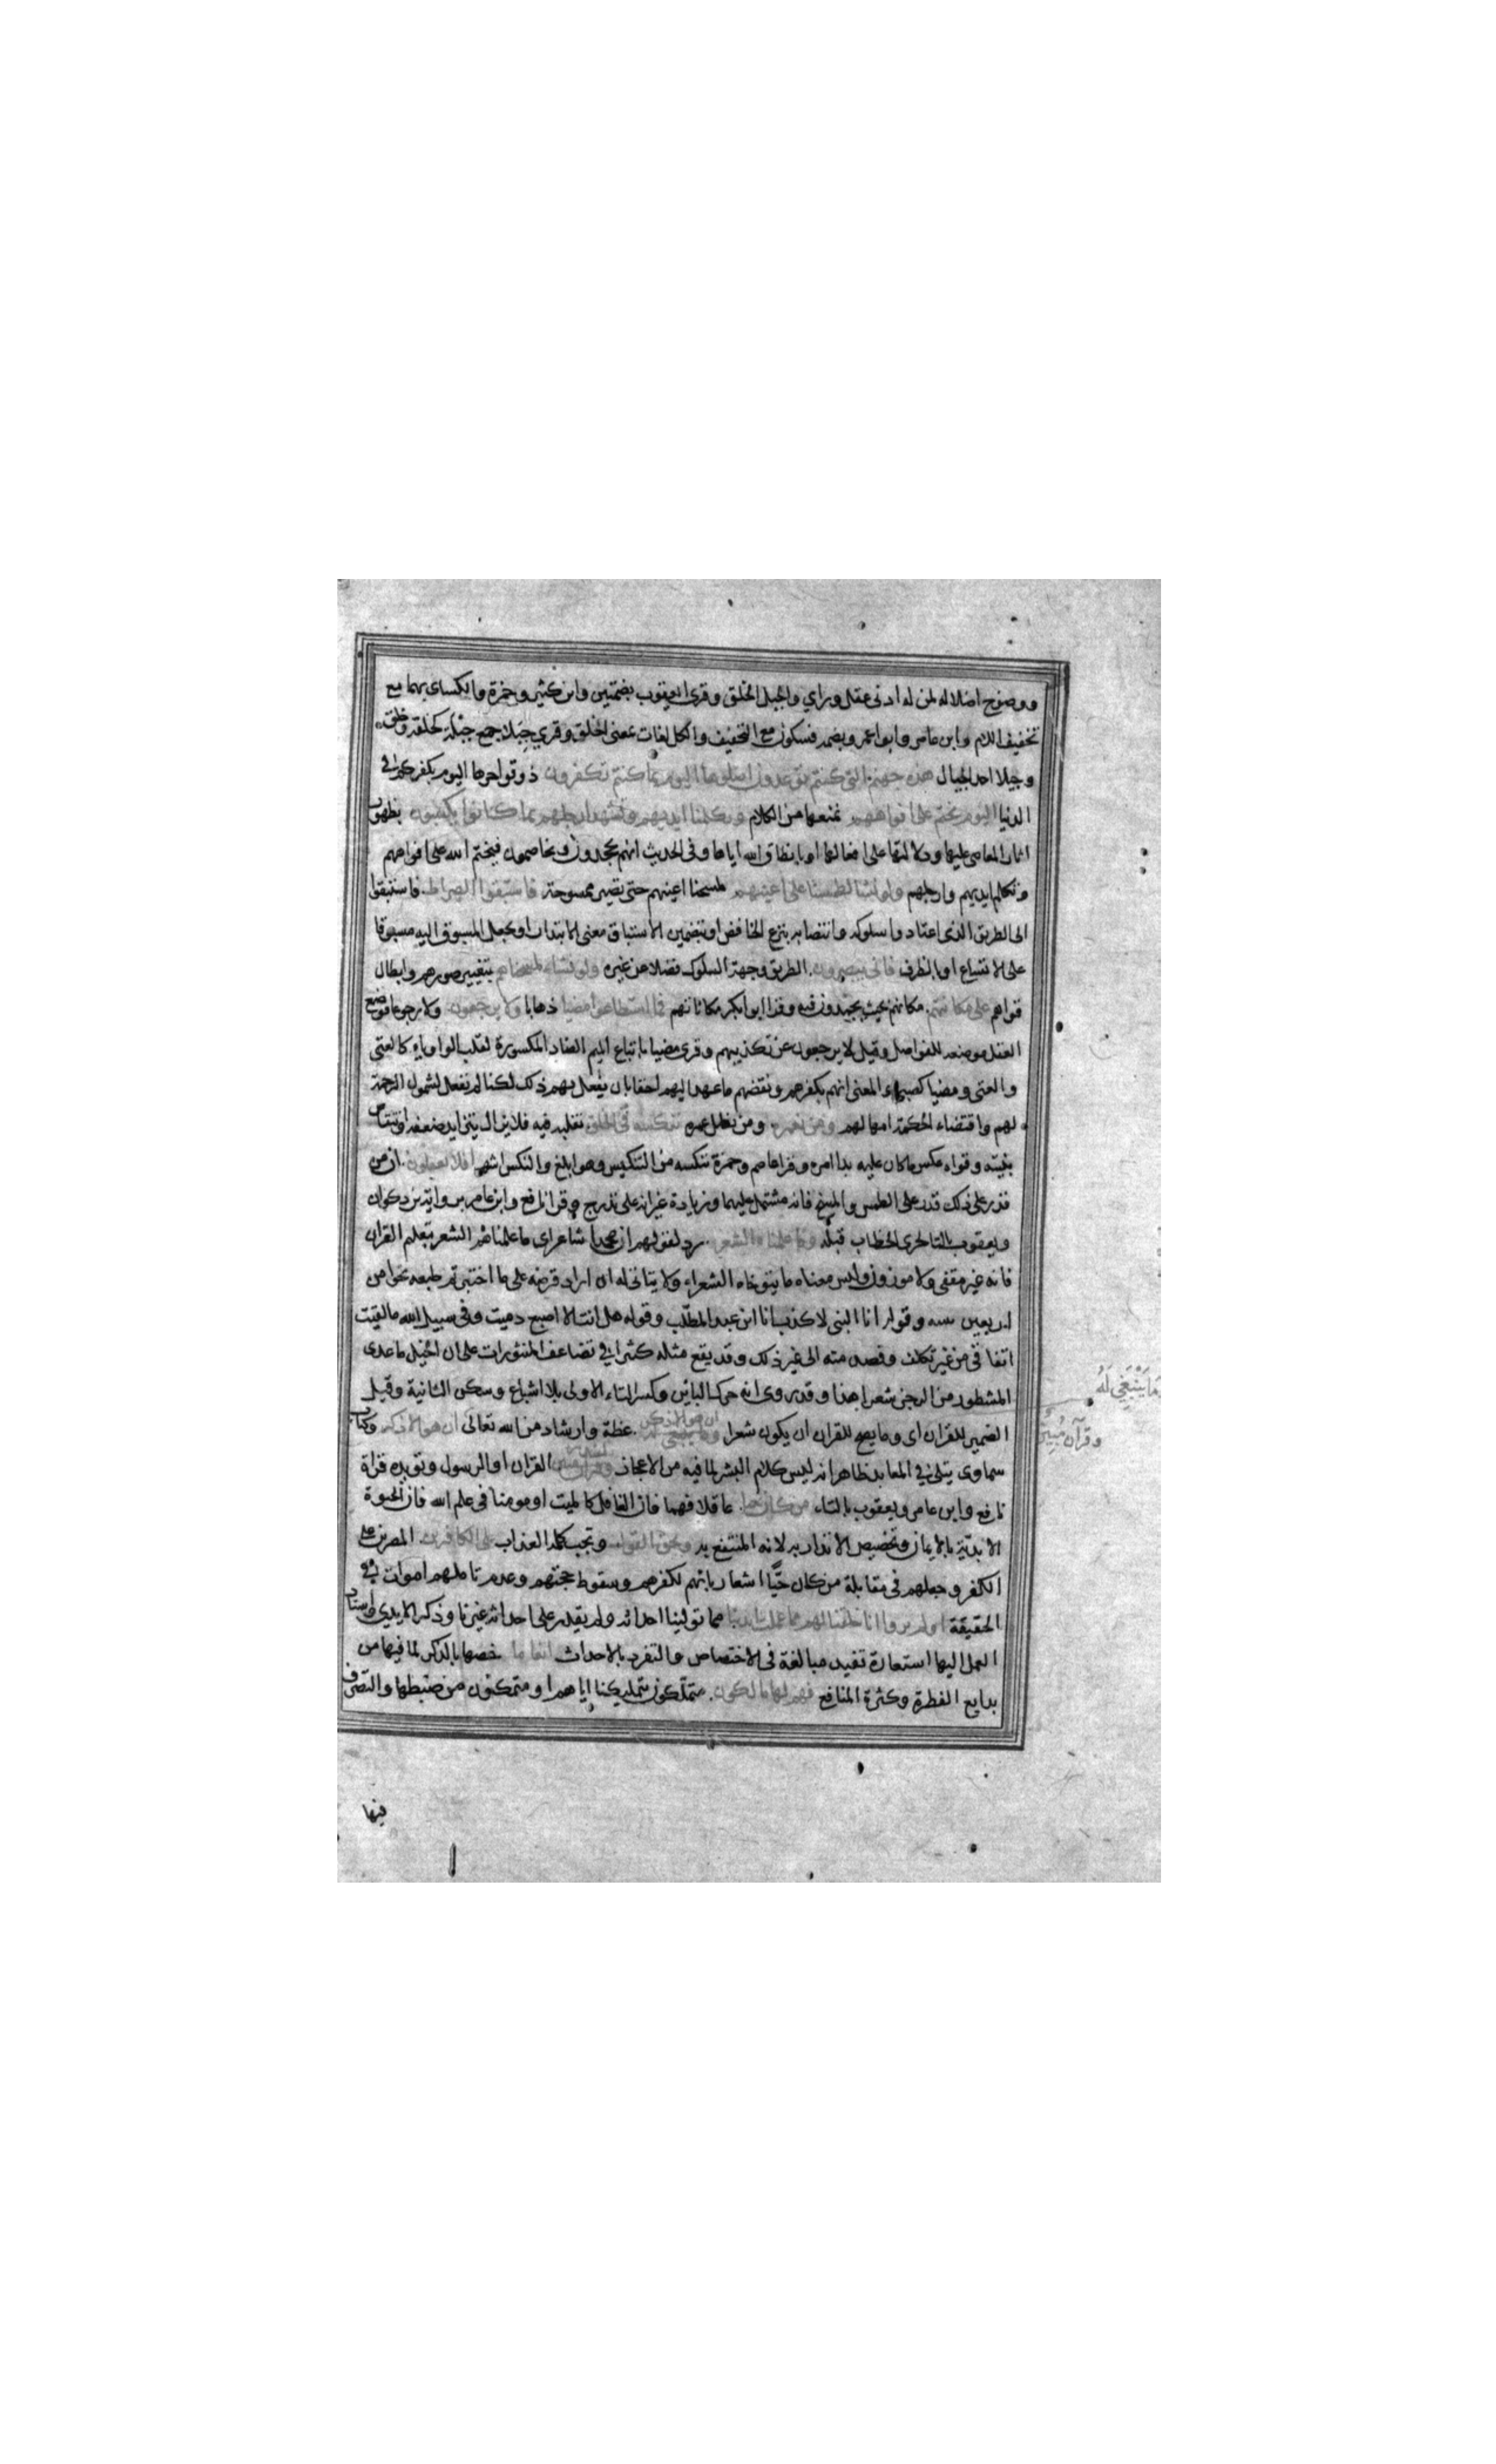 ووضوح اضلاله لمن له ادنى عقل وراي والجبل الخلق وقرئ يعقوب بضمتين وابن كثير وحمزة والكساى بهما مع
تخفيف اللام وابن عامر وابو اعمرو بضمه فسكون مع التخفيف والكل لغات بمعنى الخلق وقرى جبلا جمع جبلة كخلقة وخلق
وجيلا احد الجيال هذه جهنم التى كنتم توعدون اصلوها اليوم بما كنتم تكفرون ذوقوا حرها اليوم بكفركم فى
الدنيا اليوم نختم على افواههم نمنعها من الكلام وتكلمنا ايديهم وتشهد ارجلهم بما كانوا يكسبون بظهور
اثار المعاصى عليها ودلالتها على افعالها او بانطاق الله اياها وفى الحديث انهم يجحدون ويخاصمون فيختم الله على افواههم
وتكلم ايديهم وارجلهم ولو نشا لطمسنا على اعينهم لمسحنا اعينهم حتى تصير ممسوحة فاستبقوا الصراط فاستبقوا
الى الطريق الذى اعتادوا سلوكه وانتصابه بنزع الخافض او بتضمين الاستباق معنى الابتدار او بجعل المسبوق اليه مسبوقا
على الاتساع او بالظرف فانى يبصرون الطريق وجهة السلوك فضلا عن غيره ولو نشاء لمسخناهم بتغيير صورهم وابطال
قواهم على مكانتهم مكانهم بحيث يجمدون فيه وقرا ابو ابكر مكاناتهم فما استطاعوا مضيا ذهابا ولا يرجعون ولا رجوعا فوضع
الفعل موضعه للفواصل وقيل لا يرجعون عن تكذيبهم وقرى مضيا باتباع الميم الضاد المكسورة لقلب الواو ياء كالعتى
والعتى ومضيا كصبى والمعنى انهم بكفرهم ونقضهم ما عهد اليهم احقا بان يفعل بهم ذلك لكنا لم نفعل لشمول الرحمة
لهم واقتضاء الحكمة امهالهم ومن نعمره ومن نطل عمره ننكسه فى الخلق نقلبه فيه فلا يزال يتزايد ضعفه وانتقاص
بنيته وقواه عكس ما كان عليه بدا امره وقرا عاصم وحمزة ننكسه من التنكيس وهو ابلغ والنكس اشهر افلا يعقلون ان من
قدر على ذلك قدر على الطمس والمسخ فانه مشتمل عليهما وزيادة غير انه على تدرج وقرا نافع وابن عامر برواية بن ذكوان
ويعقوب بالتا لجرى الخطاب قبله وما علمناه الشعر رد لقولهم ان محمدا شاعر اى ما علمناه الشعر بتعليم القران
فانه غير مقفى ولا موزون وليس معناه ما يتوخاه الشعراء ولا يتاتى له ان اراد قرضه على ما اختبرتم طبعه نحوا من
اربعين سنه وقوله انا النبى لا كذب انا ابن عبد المطلب وقوله هل انت الا اصبع دميت وفى سبيل الله ما لقيت
اتفاقى من غير تكلف وقصد منه الى غير ذلك وقد يقع مثله كثيرا فى تضاعيف المنثورات على ان الخيل ما عدى
المشطور من الرجز شعرا هذا وقد روى انه حرك البائين وكسر التاء الاولى بلا اشباع وسكن الثانية وقيل
الضمير للقران اى وما يصح للقران ان يكون شعرا ان هو الا ذكر عظة وارشاد من الله تعالى ان هو الا ذكر وكتاب
سماوى يتلى فى المعابد ظاهر انه ليس كلام البشر لما فيه من الاعجاز لينذر القران او الرسول ويؤيده قراة
نافع وابن عامر ويعقوب بالتاء من كان حيا عاقلا فهما فان الغافل كالميت او مومنا فى علم الله فان الحيوة
الابدية بالايمان وتخصيص الانذار به لانه المنتفع به ويحق القول وتجب كلمة العذاب على الكافرين المصرين على
الكفر وجعلهم فى مقابلة من كان حيّا اشعار بانهم لكفرهم وسقوط حجتهم وعدم تاملهم اموات فى
الحقيقة اولم يروا انا خلقنا لهم مما عملت ايدينا مما تولينا احداثه ولم يقدر على احداثه غيرنا وذكر الايدي واسناد
العمل اليها استعارة تفيد مبالغة فى الاختصاص والتفرد بالاحداث انعاما خصها بالذكر لما فيها من
بدايع الفطرة وكثرة المنافع فهم لها مالكون متملكون بتمليكنا اياهم او متمكنون من ضبطها والتصرف
فيها
وَمَا يَنْبَغِي لَهُ
وقرآن مُبِين